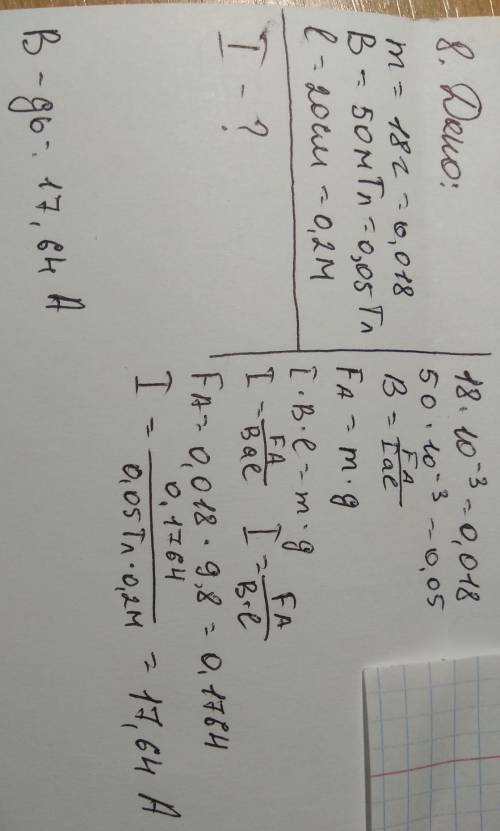 8. Дано:
m = 18г = 0,018
B = 50мТл = 0,05Тл
l = 20см = 0,2м
I - ?
18 · 10⁻³ = 0,018
50 · 10⁻³ = 0,05
B = FA / I∆l
FA = m · g
I · B · l = m · g
I = FA / B∆l I = FA / B·l
FA = 0,018 · 9,8 = 0,1764
I = 0,1764 / 0,05Тл · 0,2м = 17,64 A
В - дь: 17,64 A